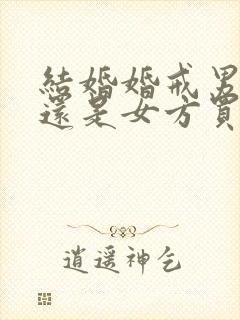 結婚婚戒男
還是女方買
逍遥神乞